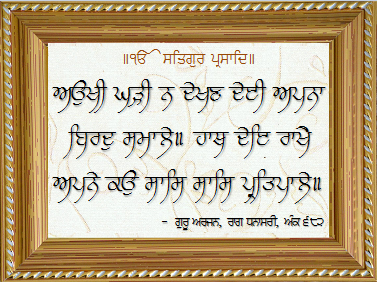 ॥ੴ ਸਤਿਗੁਰ ਪ੍ਰਸਾਦਿ॥
ਅਉਖੀ ਘੜੀ ਨ ਦੇਖਣ ਦੇਈ ਅਪਨਾ
ਬਿਰਦੁ ਸਮਾਲੇ॥ ਹਾਥ ਦੇਇ ਰਾਖੈ
ਅਪਨੇ ਕਉ ਸਾਸਿ ਸਾਸਿ ਪ੍ਰਤਿਪਾਲੇ॥
- ਗੁਰੂ ਅਰਜਨ, ਰਾਗ ਧਨਾਸਰੀ, ਅੰਕ ੬੮੨